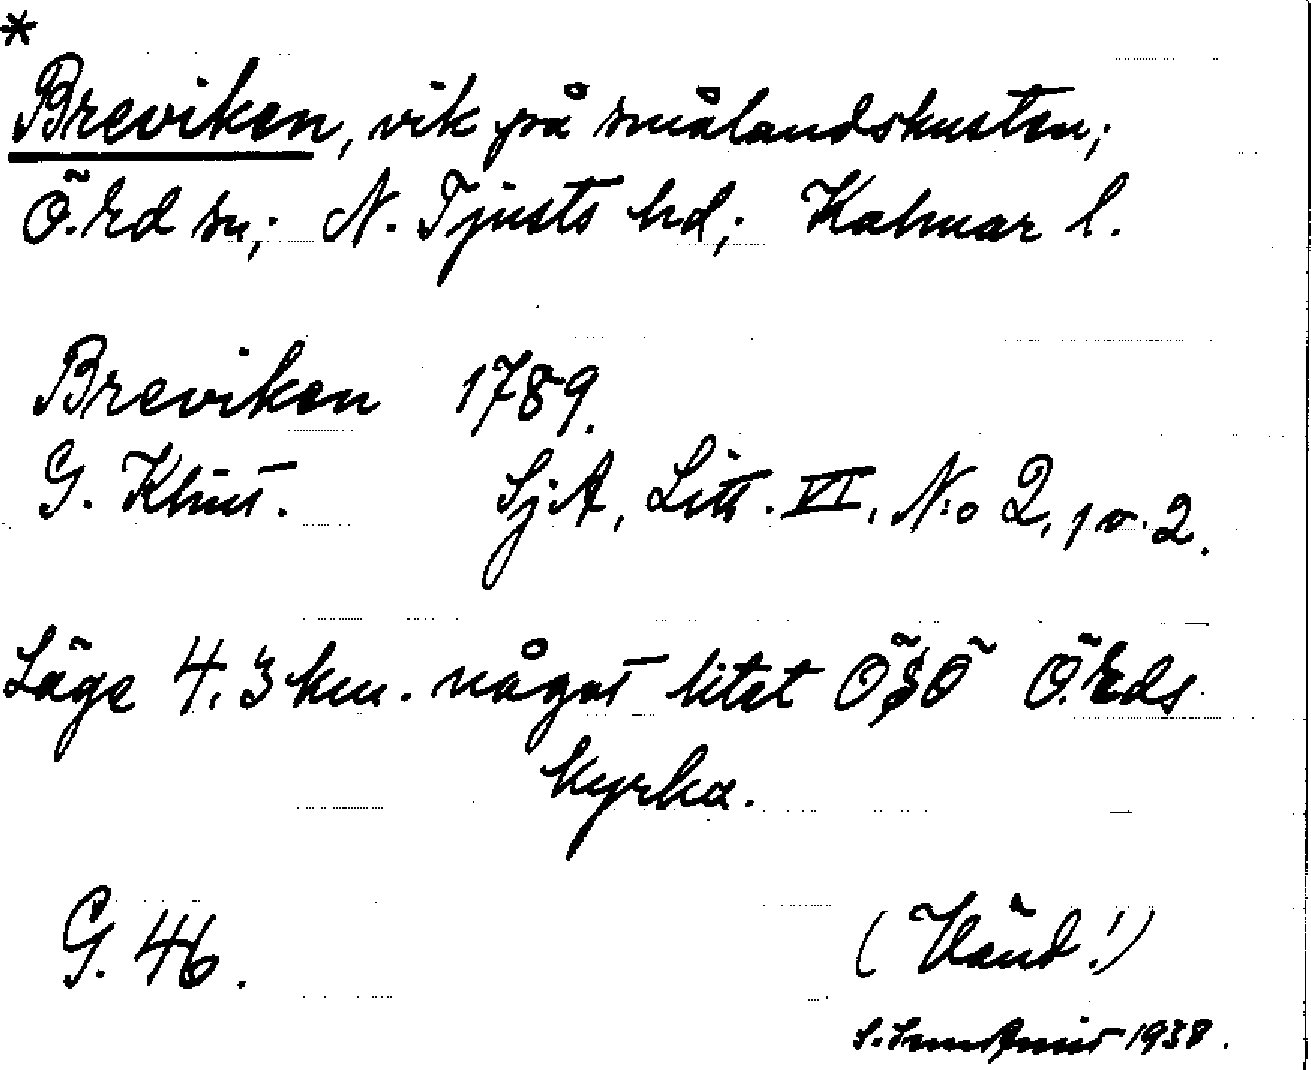 *
Breviken, vik på smålandskusten;
Ö. Ed sn; N. Tjusts hd; Kalmar l.
Breviken 1789.
G. Klint. SjA, Litt. VI, N:o 2, 1 o. 2.
Läge 4.3 km. något litet ÖSÖ Ö. Eds
kyrka.
G. 46. (Vänd!)
1938.